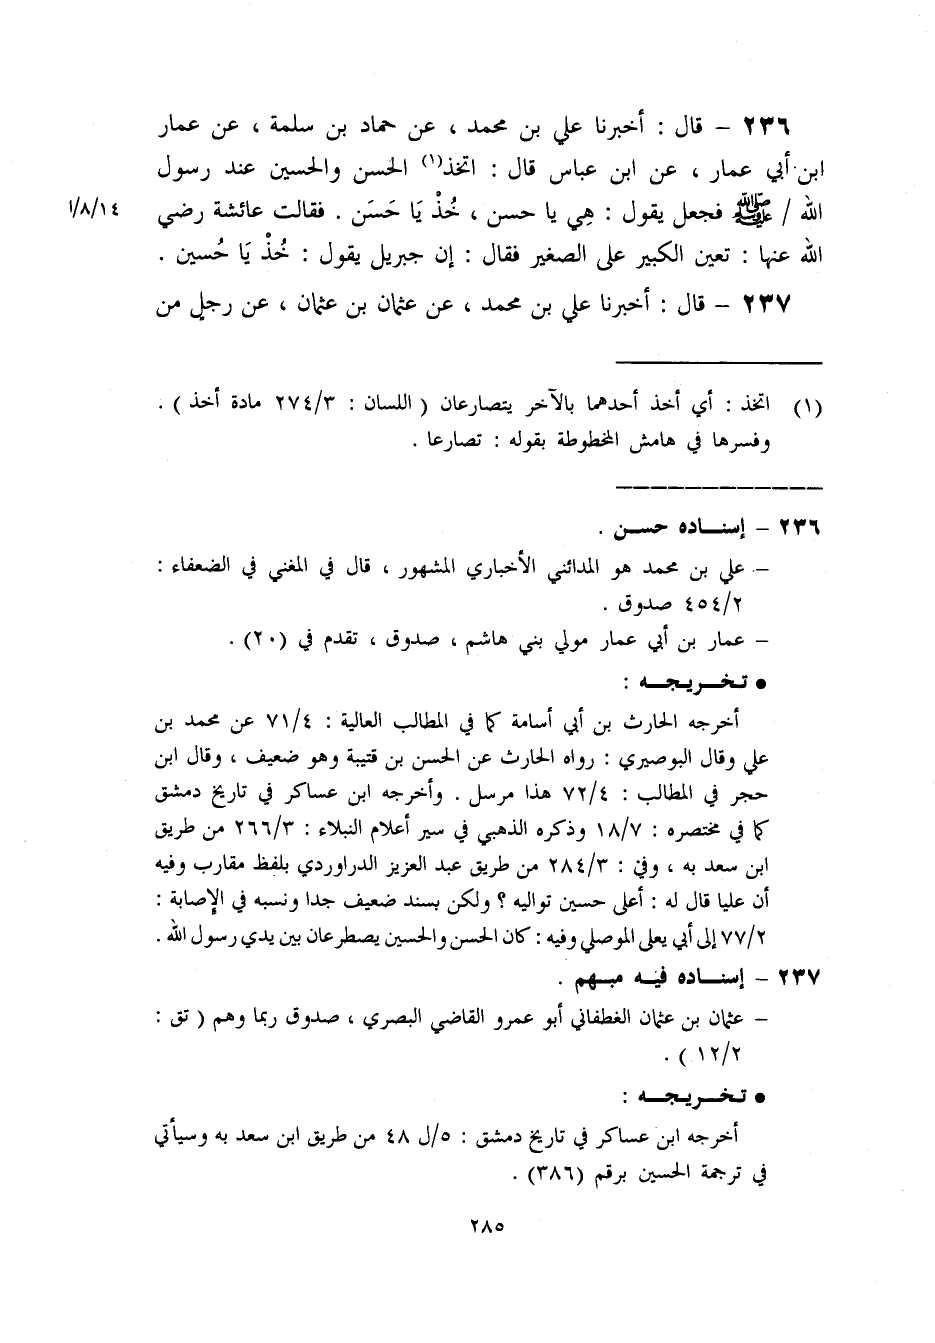 ٢٣٦ – قال : أخبرنا علي بن محمد ، عن حماد بن سلمة ، عن عمار
ابن أبي عمار ، عن ابن عباس قال : اتخذ(١) الحسن والحسين عند رسول
الله / ﷺ فجعل يقول : هِي يا حسن ، خُذْ يَا حَسَن . فقالت عائشة رضي
١/٨/١٤
الله عنها : تعين الكبير على الصغير فقال : إن جبريل يقول : خُذْ يَا حُسين .
٢٣٧ – قال : أخبرنا علي بن محمد ، عن عثمان بن عثمان ، عن رجل من
(١) اتخذ : أي أخذ أحدهما بالآخر يتصارعان ( اللسان : ٢٧٤/٣ مادة أخذ ) .
وفسرها في هامش المخطوطة بقوله : تصارعا .
٢٣٦ – إسناده حسن .
– علي بن محمد هو المدائني الأخباري المشهور ، قال في المغني في الضعفاء :
٤٥٤/٢ صدوق .
– عمار بن أبي عمار مولي بني هاشم ، صدوق ، تقدم في (٢٠) .
• تخريجه :
أخرجه الحارث بن أبي أسامة كما في المطالب العالية : ٧١/٤ عن محمد بن
علي وقال البوصيري : رواه الحارث عن الحسن بن قتيبة وهو ضعيف ، وقال ابن
حجر في المطالب : ٧٢/٤ هذا مرسل . وأخرجه ابن عساكر في تاريخ دمشق
كما في مختصره : ١٨/٧ وذكره الذهبي في سير أعلام النبلاء : ٢٦٦/٣ من طريق
ابن سعد به ، وفي : ٢٨٤/٣ من طريق عبد العزيز الدراوردي بلفظ مقارب وفيه
أن عليا قال له : أعلى حسين تواليه ؟ ولكن بسند ضعيف جدا ونسبه في الإصابة :
٧٧/٢ إلى أبي يعلى الموصلي وفيه : كان الحسن والحسين يصطرعان بين يدي رسول الله .
٢٣٧ – إسناده فيه مبهم .
– عثمان بن عثمان الغطفاني أبو عمرو القاضي البصري ، صدوق ربما وهم ( تق :
١٢/٢ ) .
• تخريجه :
أخرجه ابن عساكر في تاريخ دمشق : ٥/ل ٤٨ من طريق ابن سعد به وسيأتي
في ترجمة الحسين برقم (٣٨٦) .
٢٨٥